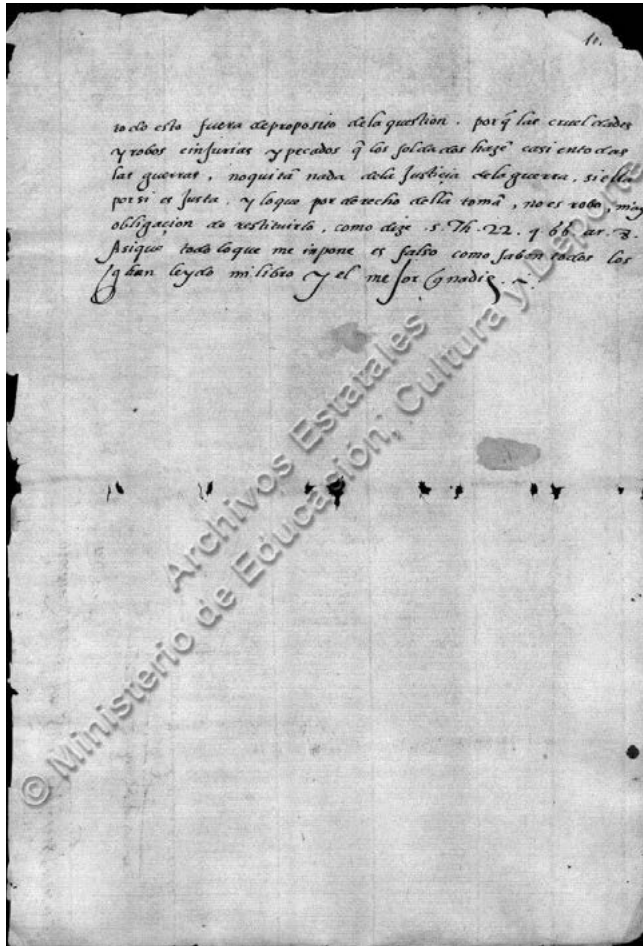 10.
todo esto fuera deproposito dela question. porq̃ las crueldades
y robos einjurias y pecados q̃ los soldados hazẽ casi entodas
las guerras, noquitã nada dela Justicia dela guerra, siella
porsi es Justa. y loque por derecho della tomã, no es robo, ni ay
obligacion de restituirlo, como dize .s. Th. 22. q. 66. ar. 8.
Asique todo loque me inpone es falso como saben todos los
q̃ han leydo mi libro y el mejor q̃ nadie.
© Ministerio de Educación, Cultura y Deporte
Archivos Estatales